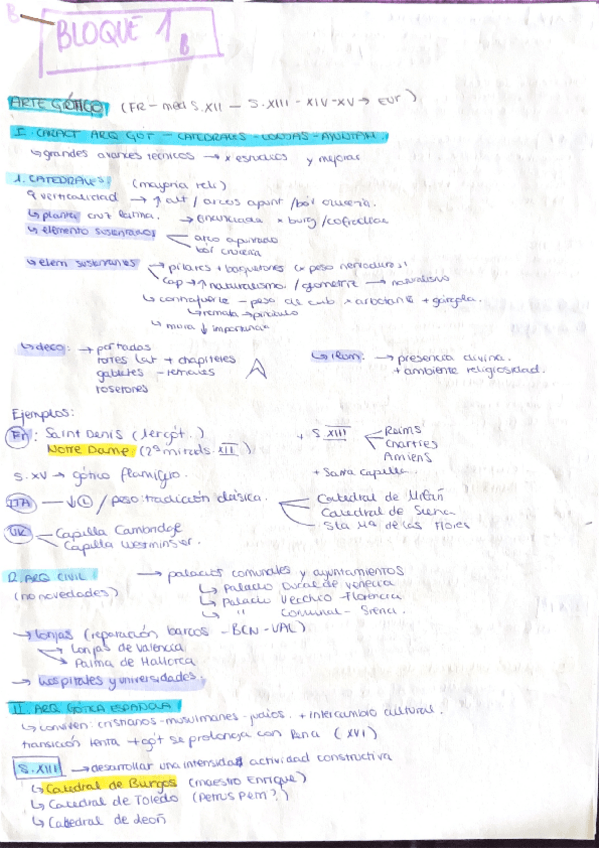 B
BLOQUE 1 B
ARTE GÓTICO (FR - med S. XII - S. XIII - XIV - XV → EUR)
I. CARACT ARQ GÓT - CATEDRALES - LONJAS - AYUNTAM.
↳ grandes avances técnicos → x esfuerzos y mejorar
1. CATEDRALES (mayoría reli)
verticalidad → ↑ alt / arcos apunt / bóv crucería.
↳ planta cruz latina. → x burg / cofradías
↳ elemento sustentados
arco apuntado
bóv crucería
↳ elem sustentantes → pilares + baquetones (x peso nervaduras)
cap → ↑ naturalismo / geometría → naturalismo
↳ contrafuerte - peso de cub x arbotante + gárgola.
↳ remate → pináculo
↳ muro ↓ importancia
↳ deco: → portadas
torres lat + chapiteles
gabletes - remates
rosetones
↳ ilum: → presencia divina.
+ ambiente religiosidad.
Ejemplos:
Fr: Saint Denis (1er gót.)
Notre Dame (2ª mitad s. XII)
+ S. XIII
Reims
Chartres
Amiens
+ Santa Capilla.
S. XV → gótico flamígero.
ITA — ↓ L / peso: tradición clásica.
Catedral de Milán
Catedral de Siena
Sta Mª de las Flores
UK
Capilla Cambridge
Capilla Westminster.
2. ARQ CIVIL → palacios comunales y ayuntamientos
(no novedades)
↳ Palacio Ducal de Venecia
↳ Palacio Vecchio - Florencia
↳ " Comunal - Siena.
→ lonjas (reparación barcos - BCN - VAL)
Lonjas de Valencia
Palma de Mallorca
→ hospitales y universidades.
II. ARQ GÓTICA ESPAÑOLA
↳ conviven: cristianos - musulmanes - judíos. + intercambio cultural.
transición lenta → gót se prolonga con Rena (XVI)
S. XIII → desarrollar una intensidad actividad constructiva
↳ Catedral de Burgos (maestro Enrique)
↳ Catedral de Toledo (Petrus Petri?)
↳ Catedral de León